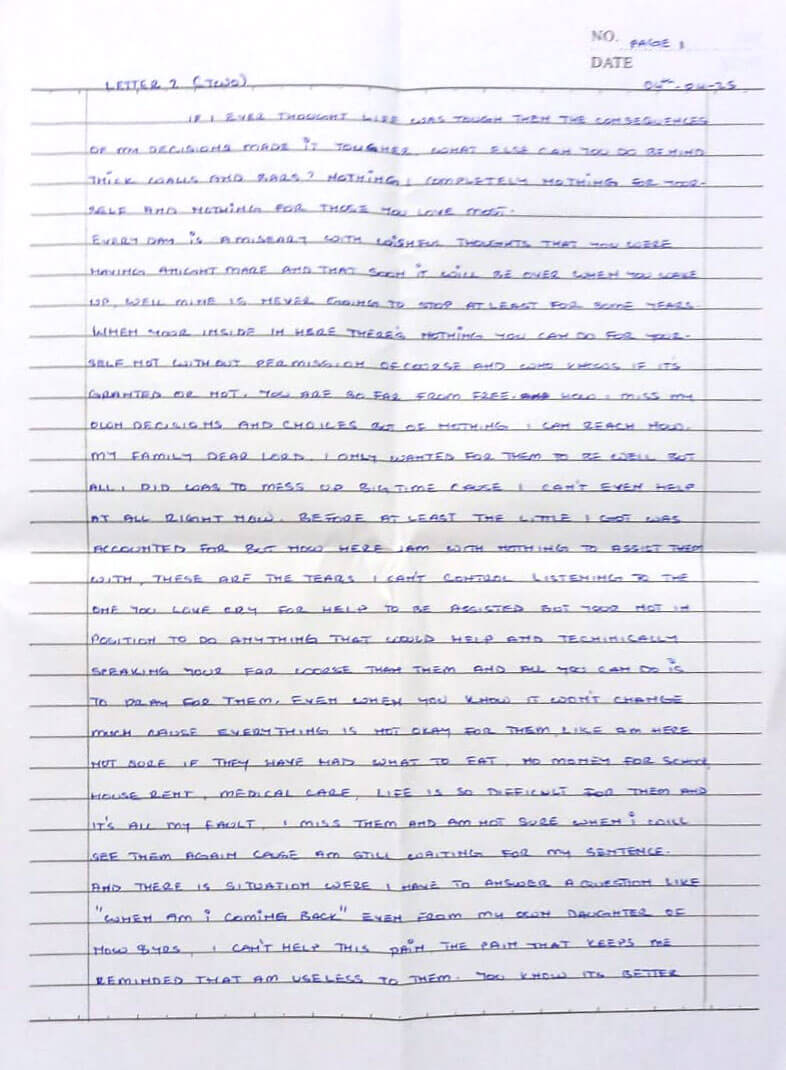 NO. PAGE 1
DATE 04th-04-25
LETTER 2 (TWO)
IF I EVER THOUGHT LIFE WAS TOUGH THEN THE CONSEQUENCES
OF MY DECISIONS MADE iT TOUGHER, WHAT ELSE CAN YOU DO BEHIND
THICK WALLS AND BARS? NOTHING, COMPLETELY NOTHING FOR YOUR-
SELF AND NOTHING FOR THOSE YOU LOVE MOST.
EVERY DAY iS A MISEARY WITH WISHFUL THOUGHTS THAT YOU WERE
HAVING ANIGHT MARE AND THAT SOON iT WILL BE OVER WHEN YOU WAKE
UP, WELL MINE IS NEVER GOING TO STOP AT LEAST FOR SOME YEARS.
WHEN YOUR INSIDE IN HERE THERE'S NOTHING YOU CAN DO FOR YOUR-
SELF NOT WITHOUT PERMISSION OFCOURSE AND WHO KNOWS IF IT'S
GRANTED OR NOT, YOU ARE SO FAR FROM FREE. HOW I MISS MY
OWN DECISIONS AND CHOICES BUT OF NOTHING I CAN REACH NOW.
MY FAMILY DEAR LORD, I ONLY WANTED FOR THEM TO BE WELL BUT
ALL I DID WAS TO MESS UP BIG TIME CAUSE I CAN'T EVEN HELP
AT ALL RIGHT NOW. BEFORE AT LEAST THE LITTLE I GOT WAS
ACCOUNTED FOR BUT NOW HERE IAM WITH NOTHING TO ASSIST THEM
WITH, THESE ARE THE TEARS I CAN'T CONTROL LISTENING TO THE
ONE YOU LOVE CRY FOR HELP TO BE ASSISTED BUT YOUR NOT IN
POSITION TO DO ANYTHING THAT WOULD HELP AND TECHINICALLY
SPEAKING YOUR FAR WORSE THAN THEM AND ALL YOU CAN DO iS
TO PRAY FOR THEM, EVEN WHEN YOU KNOW IT WON'T CHANGE
MUCH CAUSE EVERYTHING IS NOT OKAY FOR THEM, LIKE AM HERE
NOT SURE IF THEY HAVE HAD WHAT TO EAT, NO MONEY FOR SCHOOL,
HOUSE RENT, MEDICAL CARE, LIFE IS SO DIFFICULT FOR THEM AND
IT'S ALL MY FAULT, I MISS THEM AND AM NOT SURE WHEN i WILL
SEE THEM AGAIN CAUSE AM STILL WAITING FOR MY SENTENCE.
AND THERE IS SITUATION WERE I HAVE TO ANSWER A QUESTION LIKE
"WHEN AM i COMING BACK" EVEN FROM MY OWN DAUGHTER OF
NOW 8YRS, I CAN'T HELP THIS PAiN, THE PAIN THAT KEEPS ME
REMINDED THAT AM USELESS TO THEM. YOU KNOW ITS BETTER